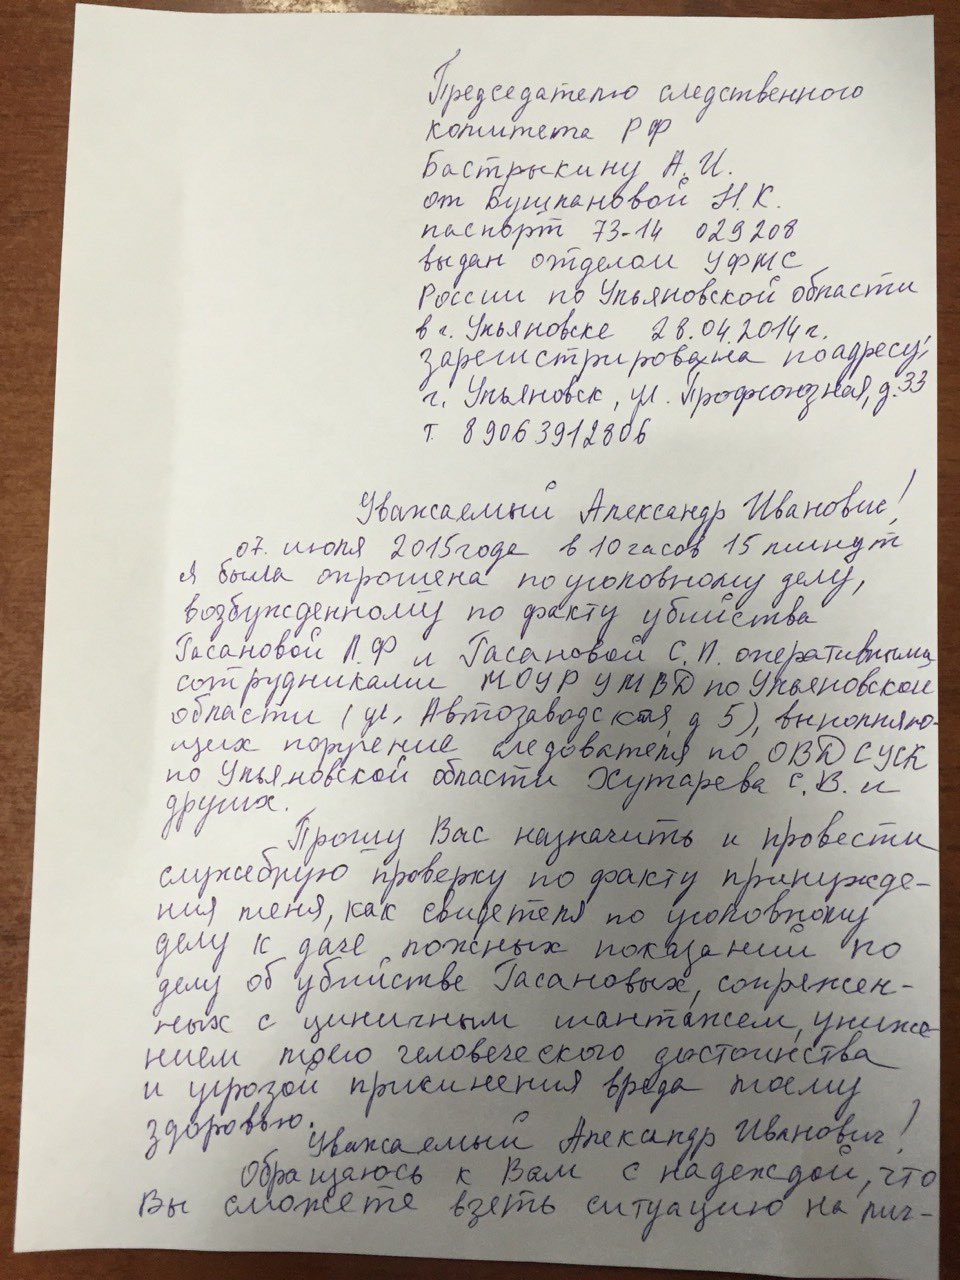 Председателю следственного
комитета РФ
Бастрыкину А.И.
от Бушпановой Н.К.
паспорт 73-14 029208
выдан отделом УФМС
России по Ульяновской области
в г. Ульяновске 28.04.2014г.
зарегистрирована по адресу:
г. Ульяновск, ул. Профсоюзная, д.33
т. 89063912806
Уважаемый Александр Иванович!
07. июля 2015 годе в 10 часов 15 минут
я была опрошена по уголовному делу,
возбужденному по факту убийства
Гасановой Л.Ф и Гасановой С.Л. оперативными
сотрудниками МОУР УМВД по Ульяновской
области (ул. Автозаводская, д 5), выполняю-
щих поручение следователя по ОВД СУСК
по Ульяновской области Хутарева С.В. и
других.
Прошу Вас назначить и провести
служебную проверку по факту принужде-
ния меня, как свидетеля по уголовному
делу к даче ложных показаний по
делу об убийстве Гасановых, сопряжен-
ных с циничным шантажем, униже-
нием моего человеческого достоинства
и угрозой причинения вреда моему
здоровью.
Уважаемый Александр Иванович!
Обращаюсь к Вам с надеждой, что
Вы сможете взеть ситуацию на лич-